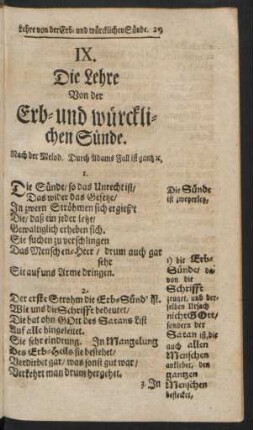 Lehre von der Erb- und würcklichen Sünde. 29
IX.
Die Lehre
Von der
Erb- und würckli-
chen Sünde.
Nach der Melod. Durch Adams Fall ist gantz ꝛc,
1.
Die Sünde/ so das Unrecht ist/
Das wider das Gesetze/
In zween Ströhmen sich ergießt
Die/ daß ein jeder letze/
Gewaltiglich erheben sich.
Sie suchen zu verschlingen
Das Menschen-Heer/ drum auch gar
sehr
Sie auf uns Arme dringen.
Die Sünde
ist zweyerley,
2.
Der erste Strohm die Erb-Sünd'
Wie uns die Schrifft bedeutet/
Die hat ohn GOtt des Satans List
Auf alle hingeleitet.
Sie sehr eindrung. In Mangelung
Des Erb-Heils sie bestehet/
Verdirbet gar/ was sonst gut war/
Verkehrt man drum hergehet.
1) die Erb-
Sünde/ da-
von die
Schrifft
zeuget, und der-
selben Ursach
nicht GOtt/
sondern der
Satan ist, die
auch allen
Menschen
anklebet, den
gantzen
Menschen
beflecket,
3. In